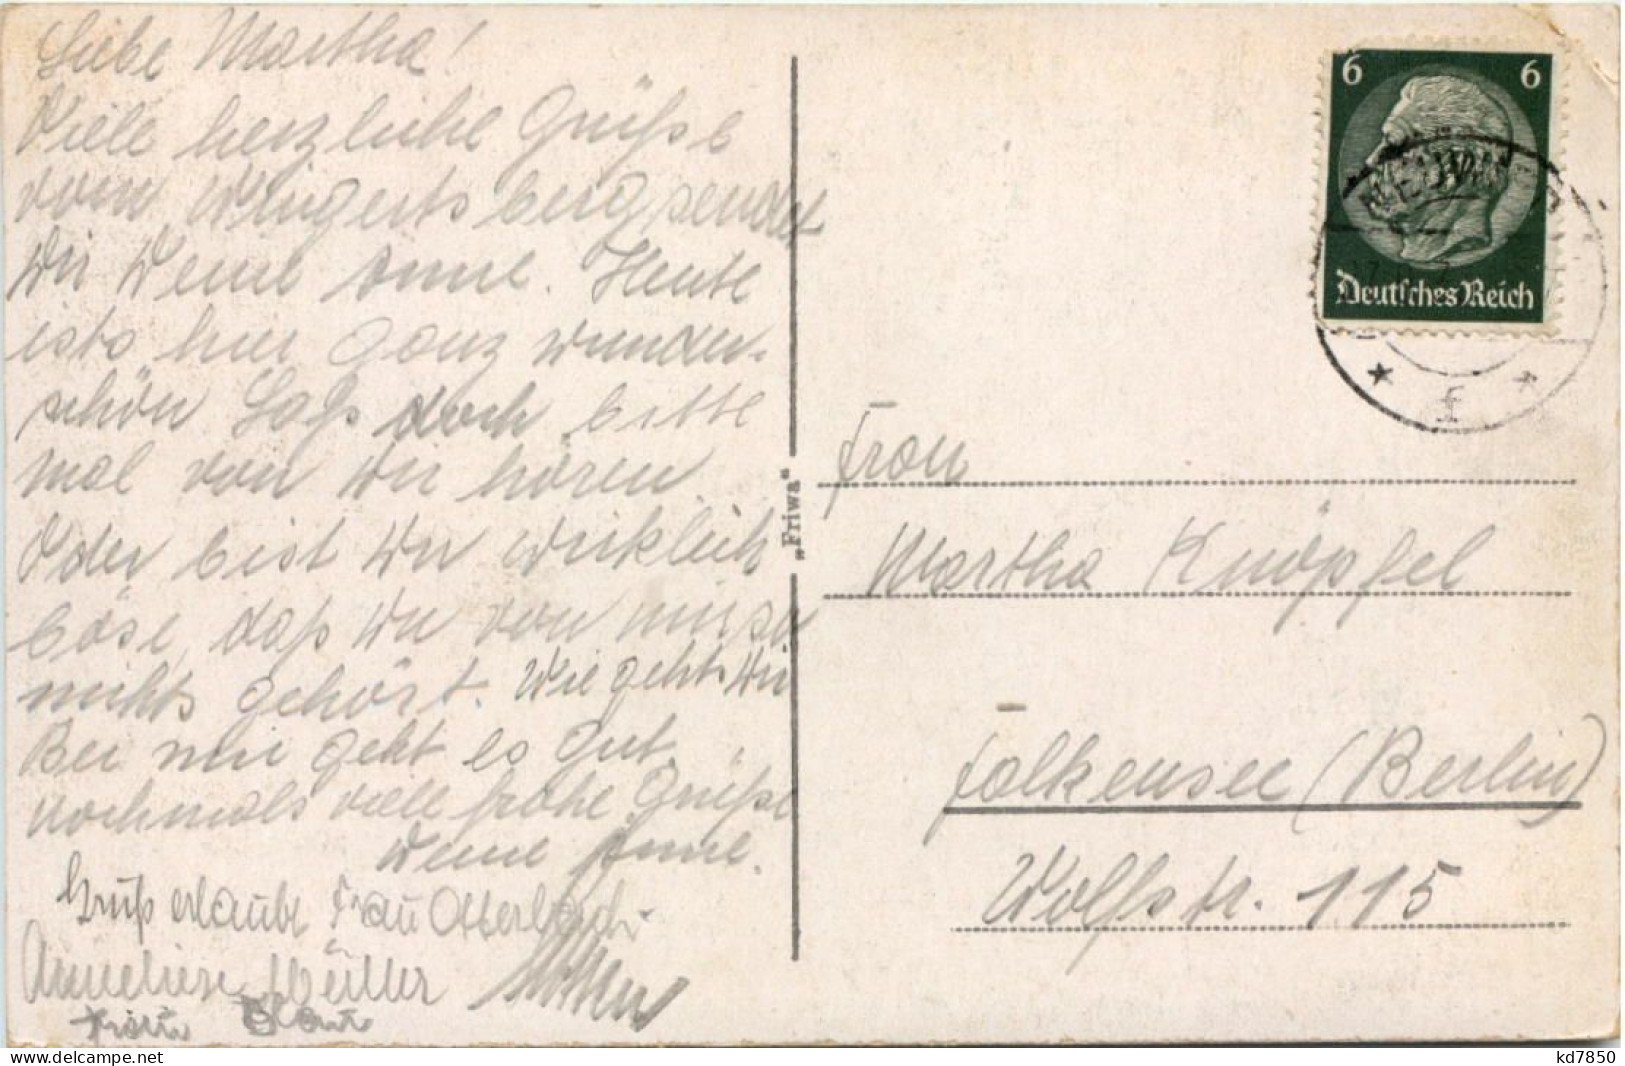 Liebe Martha!
Viele herzliche Grüße
vom Wingertsberg sendet
Dir Deine Anne. Heute
ists hier ganz wunder-
schön Laß doch bitte
mal von Dir hören
Oder bist Du wirklich
böse, daß Du von mir so
nichts gehört. Wie gehts Dir
Bei mir geht es gut.
Nochmals viele frohe Grüße
Deine Anne.
Gruß erlaubt Frau Otterbach
Anneliese Müller
Frau
6 6
Deutsches Reich
f
„Friwa“
Frau
Martha Knöpfel
Falkensee (Berlin)
Wolfstr. 115
www.delcampe.net
kd7850